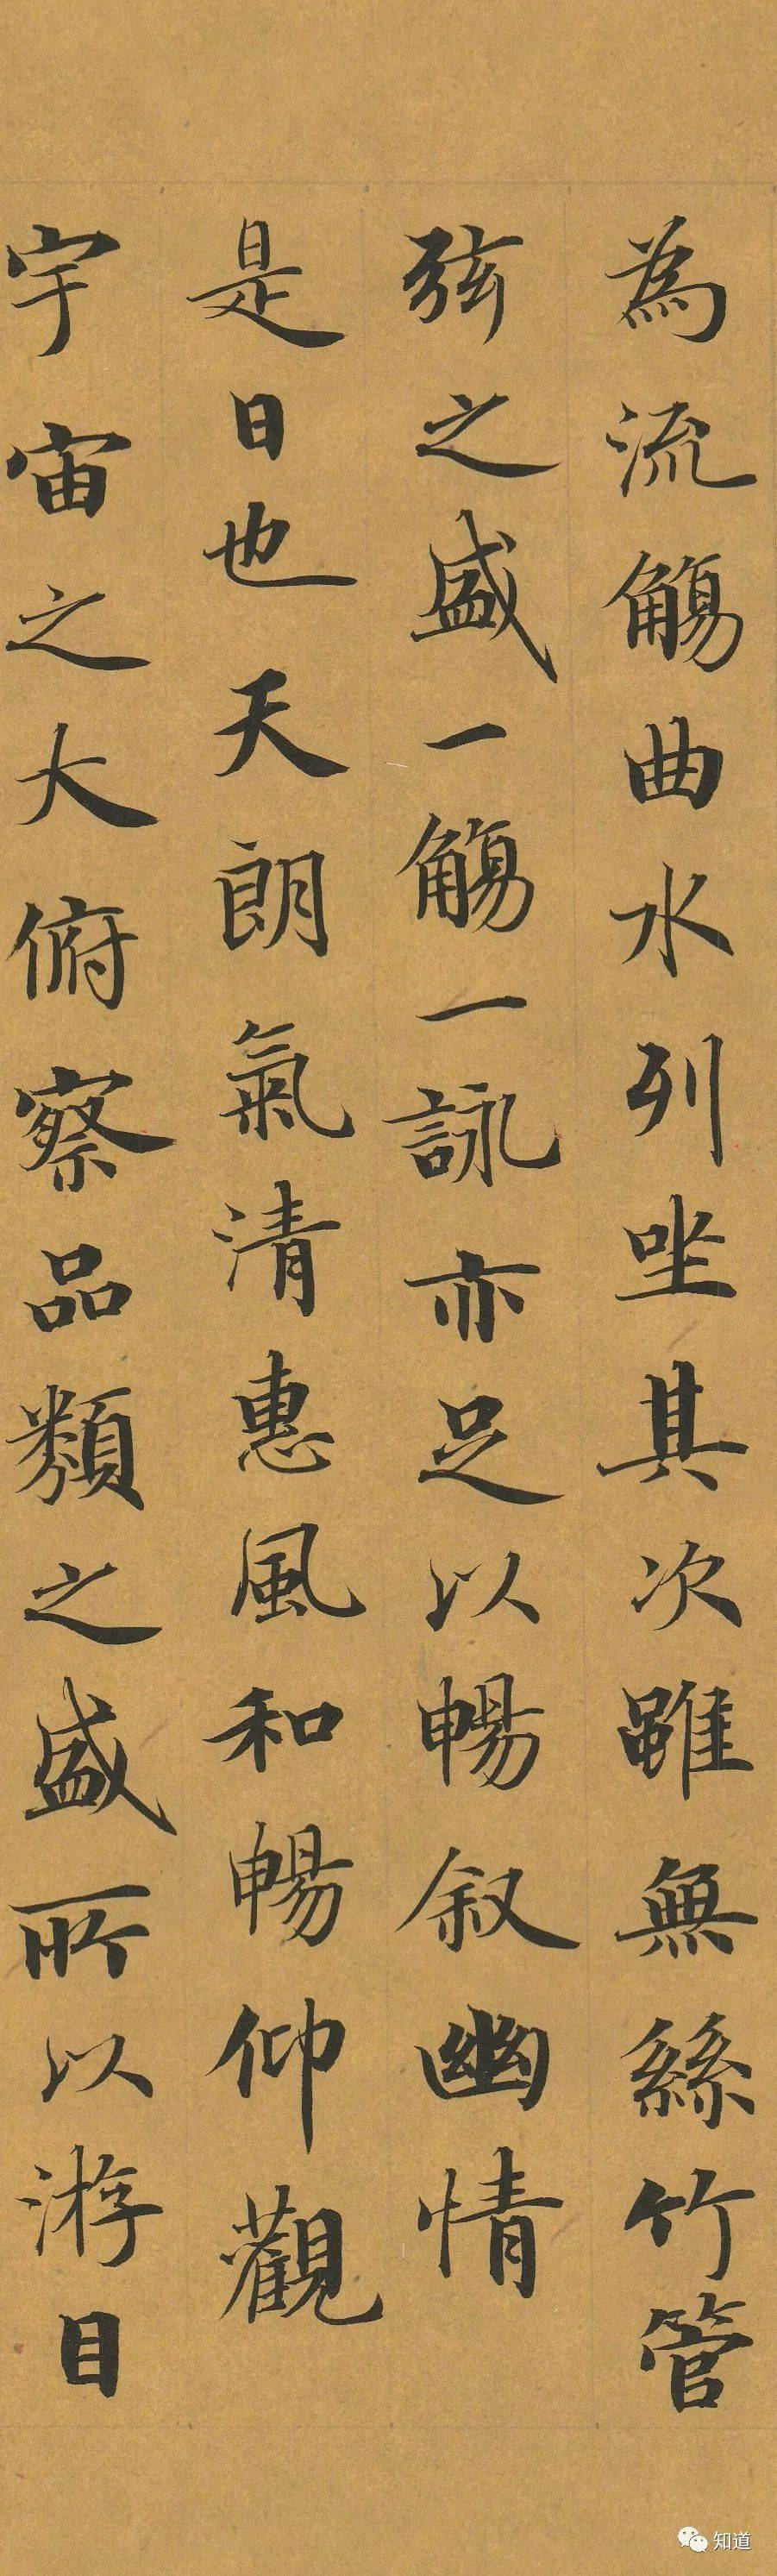 為流觴曲水列坐其次雖無絲竹管
弦之盛一觴一詠亦足以暢叙幽情
是日也天朗氣清惠風和暢仰觀
宇宙之大俯察品類之盛所以游目
知道